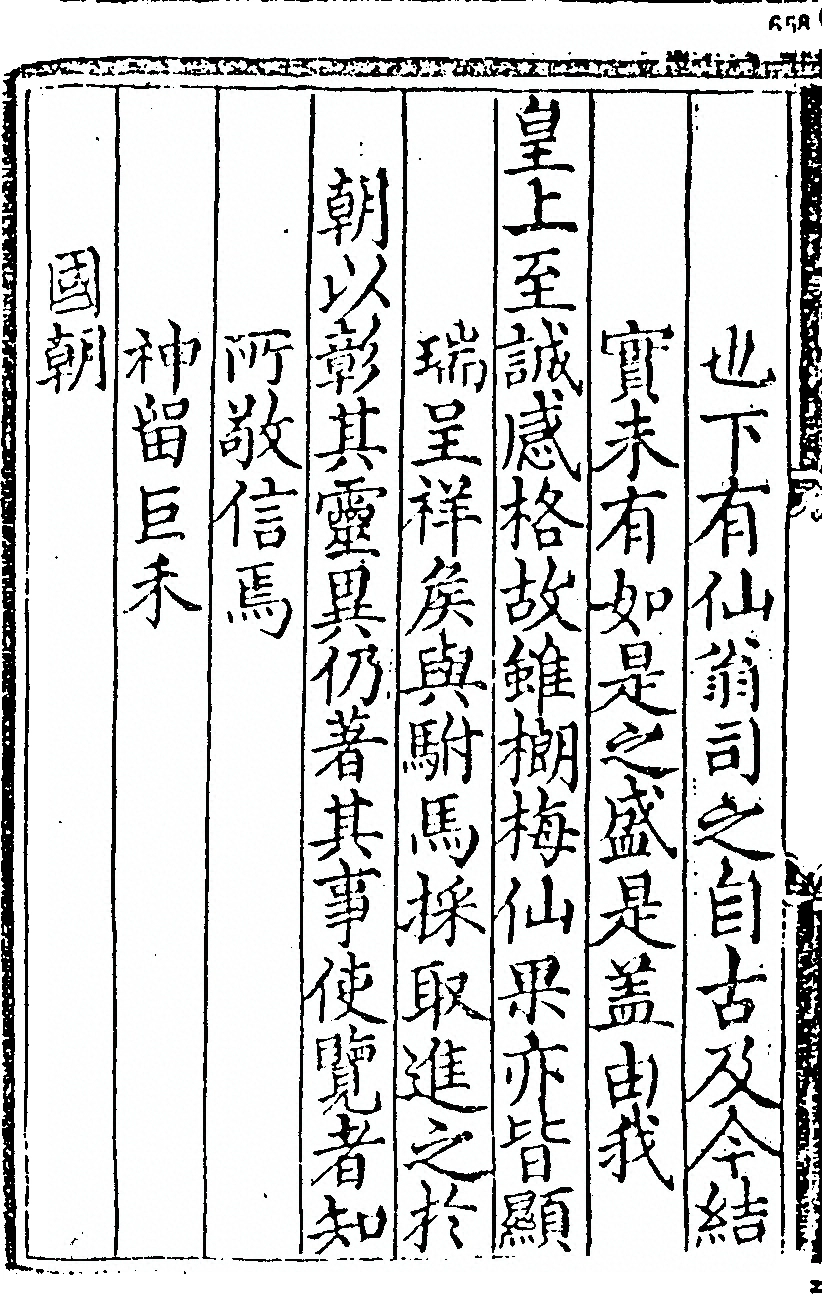 658
也下有仙翁司之自古及今結
實未有如是之盛是盖由我
皇上至誠感格故雖榔梅仙果亦皆顯
瑞呈祥矣與駙馬採取進之於
朝以彰其靈異仍著其事使覽者知
所敬信焉
神留巨木
國朝